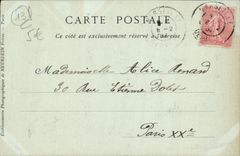 13
5€
CARTE POSTALE
Ce côté est exclusivement réservé à l'adresse
Mademoiselle Alice Renard
30 Rue Etienne Dolet
Paris XXe
Etablissements Photographiques de NEURDEIN Frères. — Paris